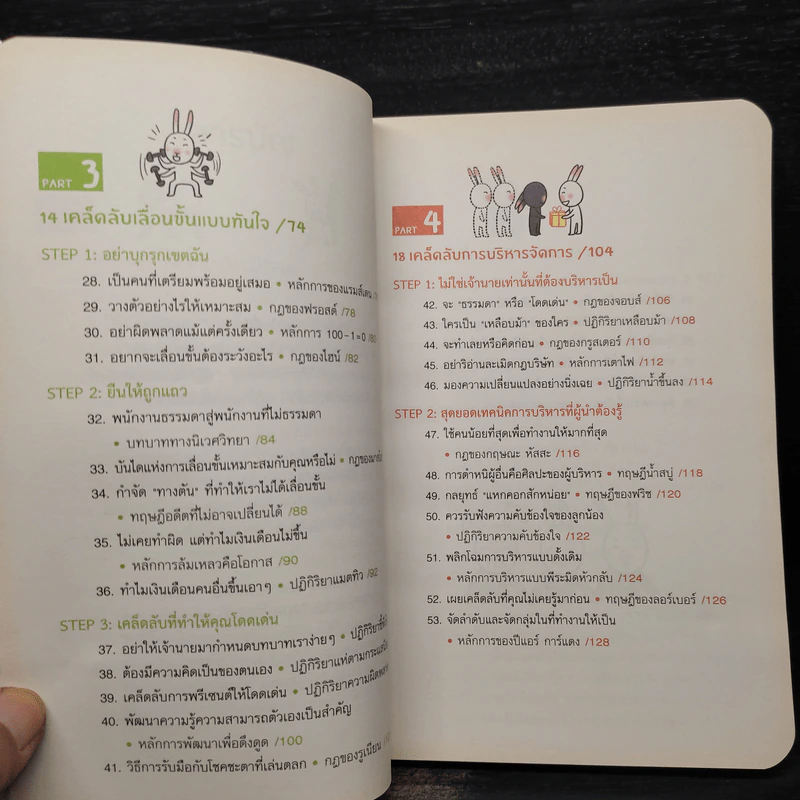 PART 3
14 เคล็ดลับเลื่อนขั้นแบบทันใจ /74
STEP 1: อย่าบุกรุกเขตฉัน
28. เป็นคนที่เตรียมพร้อมอยู่เสมอ • หลักการของแรมส์เดน
29. วางตัวอย่างไรให้เหมาะสม • กฎของฟรอสต์ /78
30. อย่าผิดพลาดแม้แต่ครั้งเดียว • หลักการ 100-1=0 /80
31. อยากจะเลื่อนขั้นต้องระวังอะไร • กฎของไฮน์ /82
STEP 2: ยืนให้ถูกแถว
32. พนักงานธรรมดาสู่พนักงานที่ไม่ธรรมดา
• บทบาททางนิเวศวิทยา /84
33. บันไดแห่งการเลื่อนขั้นเหมาะสมกับคุณหรือไม่ •
34. กำจัด "ทางตัน" ที่ทำให้เราไม่ได้เลื่อนขั้น
• ทฤษฎีอดีตที่ไม่อาจเปลี่ยนได้ /88
35. ไม่เคยทำผิด แต่ทำไมเงินเดือนไม่ขึ้น
• หลักการล้มเหลวคือโอกาส /90
36. ทำไมเงินเดือนคนอื่นขึ้นเอาๆ • ปฏิกิริยาแมตทิว /92
STEP 3: เคล็ดลับที่ทำให้คุณโดดเด่น
37. อย่าให้เจ้านายมากำหนดบทบาทเราง่ายๆ •
38. ต้องมีความคิดเป็นของตนเอง • ปฏิกิริยาแห่ตามกระแส
39. เคล็ดลับการพรีเซนต์ให้โดดเด่น •
40. พัฒนาความรู้ความสามารถตัวเองเป็นสำคัญ
• หลักการพัฒนาเพื่อดึงดูด /100
41. วิธีการรับมือกับโชคชะตาที่เล่นตลก • กฎของรูเนียน
PART 4
18 เคล็ดลับการบริหารจัดการ /104
STEP 1: ไม่ใช่เจ้านายเท่านั้นที่ต้องบริหารเป็น
42. จะ "ธรรมดา" หรือ "โดดเด่น" • กฎของจอบส์ /106
43. ใครเป็น "เหลือบม้า" ของใคร • ปฏิกิริยาเหลือบม้า /108
44. จะทำเลยหรือคิดก่อน • กฎของกรูสเตอร์ /110
45. อย่าริอ่านละเมิดกฎบริษัท • หลักการเตาไฟ /112
46. มองความเปลี่ยนแปลงอย่างนิ่งเฉย • ปฏิกิริยาน้ำขึ้นลง /114
STEP 2: สุดยอดเทคนิคการบริหารที่ผู้นำต้องรู้
47. ใช้คนน้อยที่สุดเพื่อทำงานให้มากที่สุด
• กฎของกฤษณะ หัสสะ /116
48. การตำหนิผู้อื่นคือศิลปะของผู้บริหาร • ทฤษฎีน้ำสบู่ /118
49. กลยุทธ์ "แหกคอกสักหน่อย" • ทฤษฎีของฟริช /120
50. ควรรับฟังความคับข้องใจของลูกน้อง
• ปฏิกิริยาความคับข้องใจ /122
51. พลิกโฉมการบริหารแบบดั้งเดิม
• หลักการบริหารแบบพีระมิดหัวกลับ /124
52. เผยเคล็ดลับที่คุณไม่เคยรู้มาก่อน • ทฤษฎีของลอร์เบอร์ /126
53. จัดลำดับและจัดกลุ่มในที่ทำงานให้เป็น
• หลักการของปีแอร์ การ์แดง /128